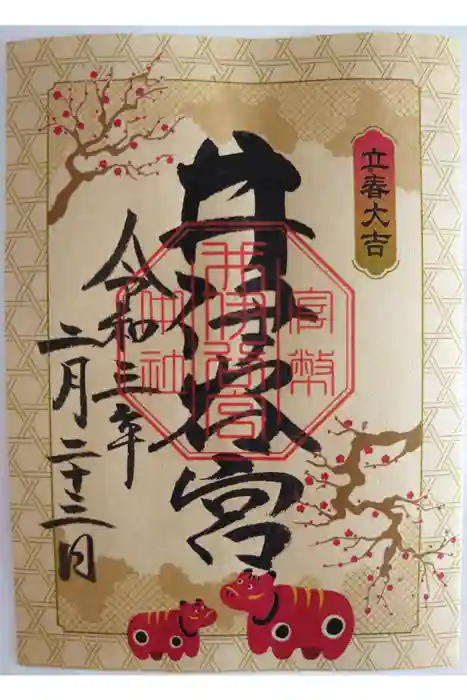 立春大吉
井伊谷宮
官幣
井伊谷宮
中社
令和三年
二月二十三日